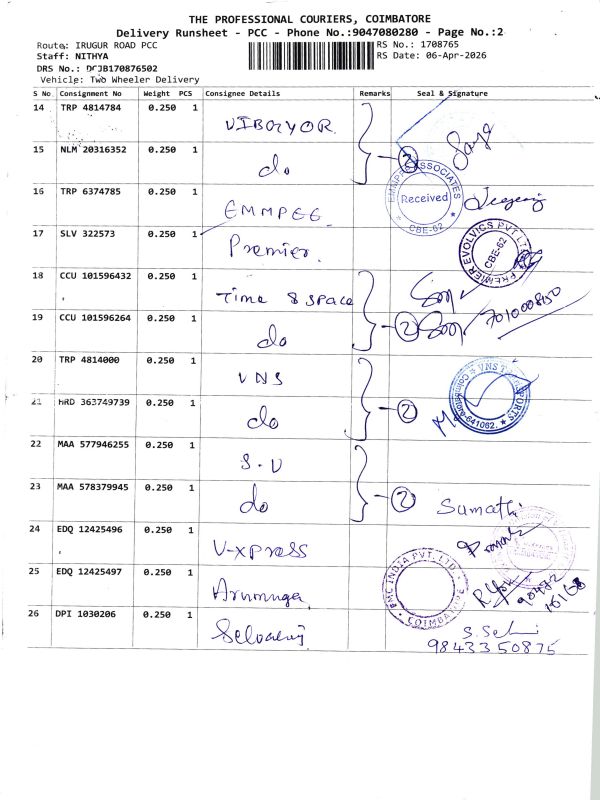 THE PROFESSIONAL COURIERS, COIMBATORE
Delivery Runsheet - PCC - Phone No.:9047080280 - Page No.:2
Route: IRUGUR ROAD PCC RS No.: 1708765
Staff: NITHYA RS Date: 06-Apr-2026
DRS No.: DCJB170876502
Vehicle: Two Wheeler Delivery
S No Consignment No Weight PCS Consignee Details Remarks Seal & Signature
14 TRP 4814784 0.250 1 VIBGYOR
15 NLM 20316352 0.250 1 do 2
EMMPEE ASSOCIATES Received CBE-62
16 TRP 6374785 0.250 1 EMMPEE
17 SLV 322573 0.250 1 Premier
PREMIER EVOLVICS PVT LTD CBE-62
18 CCU 101596432 0.250 1 Time & Space
19 CCU 101596264 0.250 1 do 2
20 TRP 4814000 0.250 1 VNS
21 HRD 363749739 0.250 1 do 2
VNS TRANSPORTS 641062.
22 MAA 577946255 0.250 1 S.V
23 MAA 578379945 0.250 1 do 2 Sumathi
24 EDQ 12425496 0.250 1 V-Xpress
25 EDQ 12425497 0.250 1 Arumuga
INDIA PVT. LTD. COIMBATORE
26 DPI 1030206 0.250 1 Selvaraj
9843350875